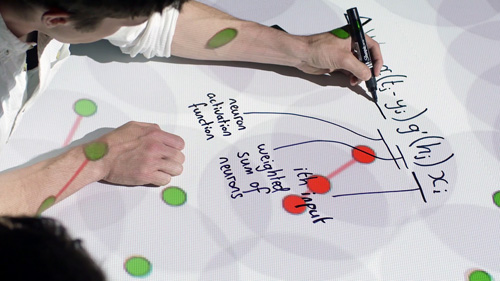 (tⱼ-yⱼ) g'(hⱼ) xᵢ
neuron
activation
function
weighted
sum of
neurons
ith input